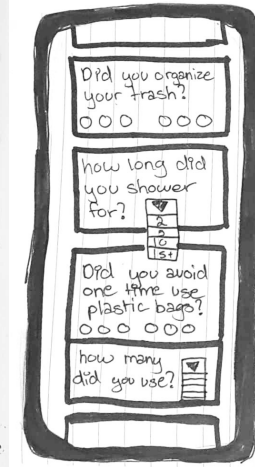 Did you organize
your trash?
how long did
you shower
for?
2
10
15+
Did you avoid
one time use
plastic bags?
how many
did you use?